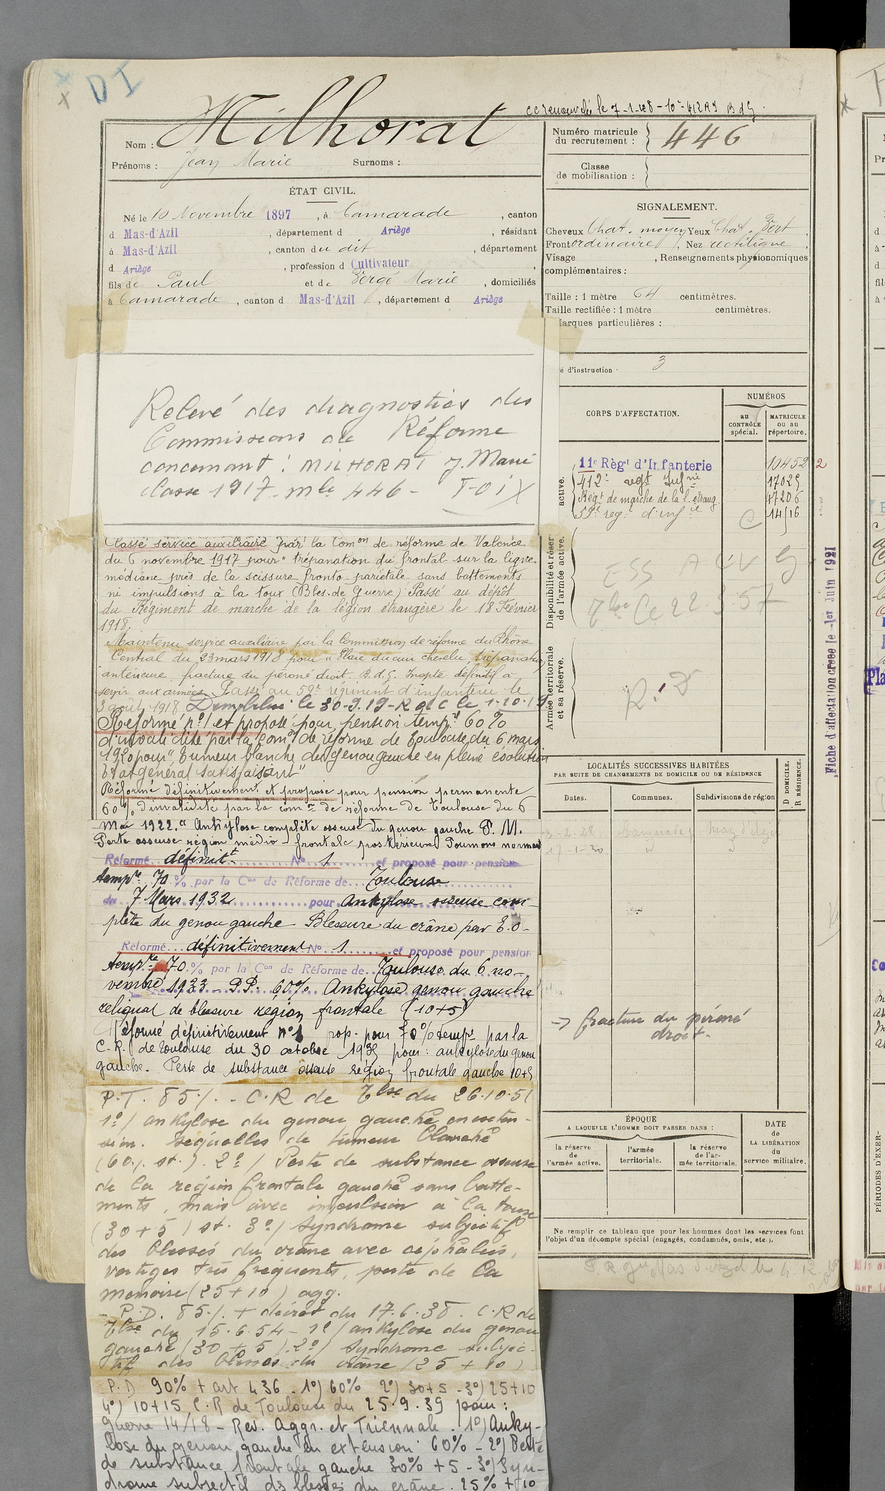 DI
cc renouvelée le 7-1-
Nom : Milhorat
Prénoms : Jean Marie Surnoms :
ÉTAT CIVIL.
Né le 10 Novembre 1897, à Camarade, canton
d Mas-d'Azil, département d Ariège, résidant
à Mas-d'Azil, canton du dit, département
d Ariège, profession d Cultivateur
fils de Paul et de Bergé Marie, domiciliés
à Camarade, canton d Mas-d'Azil, département d Ariège
Numéro matricule du recrutement : 446
Classe de mobilisation :
SIGNALEMENT.
Cheveux Chat. moyen Yeux Chat. Vert
Front ordinaire, Nez rectiligne
Visage , Renseignements physionomiques
complémentaires :
Taille : 1 mètre 64 centimètres.
Taille rectifiée : 1 mètre centimètres.
Marques particulières :
é d'instruction 3
Relevé des diagnostics des
Commissions de Réforme
concernant : MILHORAT J. Marie
classe 1917. mle 446 - FOIX
Classé service auxiliaire par la Comon de réforme de Valence
du 6 novembre 1917 pour trépanation du frontal sur la ligne
médiane près de la scissure fronto-pariétale sans battements
ni impulsions à la toux (Bles. de Guerre) Passé au dépôt
du Régiment de marche de la légion étrangère le 18 Février
1918.
Maintenu service auxiliaire par la Commission de réforme du Rhône
Central du 23 mars 1918 pour "Plaie du cuir chevelu, trépanation
antérieure, fracture du péroné droit. B.d.G. Inapte définitif à
servir aux armées. Passé au 59e régiment d'infanterie le
3 août 1918 Démobilisé le 30-9-19-R d C le 1-10-19
Réformé no 1 et proposé pour pension tempre 60%
d'invalidité par la Comon de réforme de Toulouse du 6 mars
1920 pour "Tumeur blanche du genou gauche en pleine évolution
Etat général satisfaisant"
Réformé définitivement et proposé pour pension permanente
60% d'invalidité par la comon de réforme de Toulouse du 6
Mai 1922. Ankylose complète osseuse du genou gauche P. M.
Perte osseuse région médio-frontale postérieure Poumons normaux
Réformé définitt No 1 et proposé pour pension
tempre 70 % par la Con de Réforme de Toulouse
du 7 Mars 1932 pour ankylose osseuse com-
plète du genou gauche Blessure du crâne par E.O-
Réformé définitivement No 1 et proposé pour pension
tempre 70 % par la Con de Réforme de Toulouse du 6 no-
vembre 1933 - P.P. 60% Ankylose genou gauche
reliquat de blessure région frontale (10+5)
Réformé définitivement no 1 prop. pour 70% tempre par la
C.R. de Toulouse du 30 octobre pour : ankylose du genou
gauche. Perte de substance osseuse région frontale gauche 10+5
P.T. 85%. - C.R de Tlse du 26-10-51
1o/ ankylose du genou gauche en exten-
sion. Séquelles de tumeur blanche
(60% st.). 2o/ Perte de substance osseuse
de la région frontale gauche sans batte-
ments, mais avec impulsion à la toux
(30+5) st. 3o/ Syndrome subjectif
des blessés du crâne avec céphalées,
vertiges très fréquents, perte de la
mémoire (25+10) agg.
- P.D. 85% + décret du 17.6.38. C.R de
Tlse du 15.6.54 - 1o/ ankylose du genou
gauche (30+5). 2o/ Syndrome subjec-
tif des blessés du crâne (25+10)
P.D 90% + art 436. 1o) 60% 2o) 30+5 - 3o) 25+10
4o) 10+15, C.R de Toulouse du 25.9.39 pour :
Guerre 14/18 - Rev. Aggr. et Triennale. 1o) Anky-
lose du genou gauche en extension : 60% - 2o) Perte
de substance frontale gauche 30% +5 - 3o) Syn-
drome subjectif des blessés du crâne. 25% +10
CORPS D'AFFECTATION.
NUMÉROS
au CONTRÔLE spécial.
MATRICULE ou au répertoire.
active.
11e Régt d'Infanterie 10452
412e regt Infrie 17029
Régt de marche de la l. étrang 47206
59e reg. d'infie C 14116
Disponibilité et réserve de l'armée active.
Armée territoriale et sa réserve.
R.D
LOCALITÉS SUCCESSIVES HABITÉES
PAR SUITE DE CHANGEMENTS DE DOMICILE OU DE RÉSIDENCE
Dates. Communes. Subdivisions de région
D DOMICILE. R RÉSIDENCE.
→ fracture du péroné
droit.
ÉPOQUE
A LAQUELLE L'HOMME DOIT PASSER DANS :
la réserve de l'armée active.
l'armée territoriale.
la réserve de l'armée territoriale.
DATE de LA LIBÉRATION du service militaire.
Ne remplir ce tableau que pour les hommes dont les services font
l'objet d'un décompte spécial (engagés, condamnés, omis, etc.).
Fiche d'affectation cessé le 1er Juin 1921
PÉRIODES D'EXER-